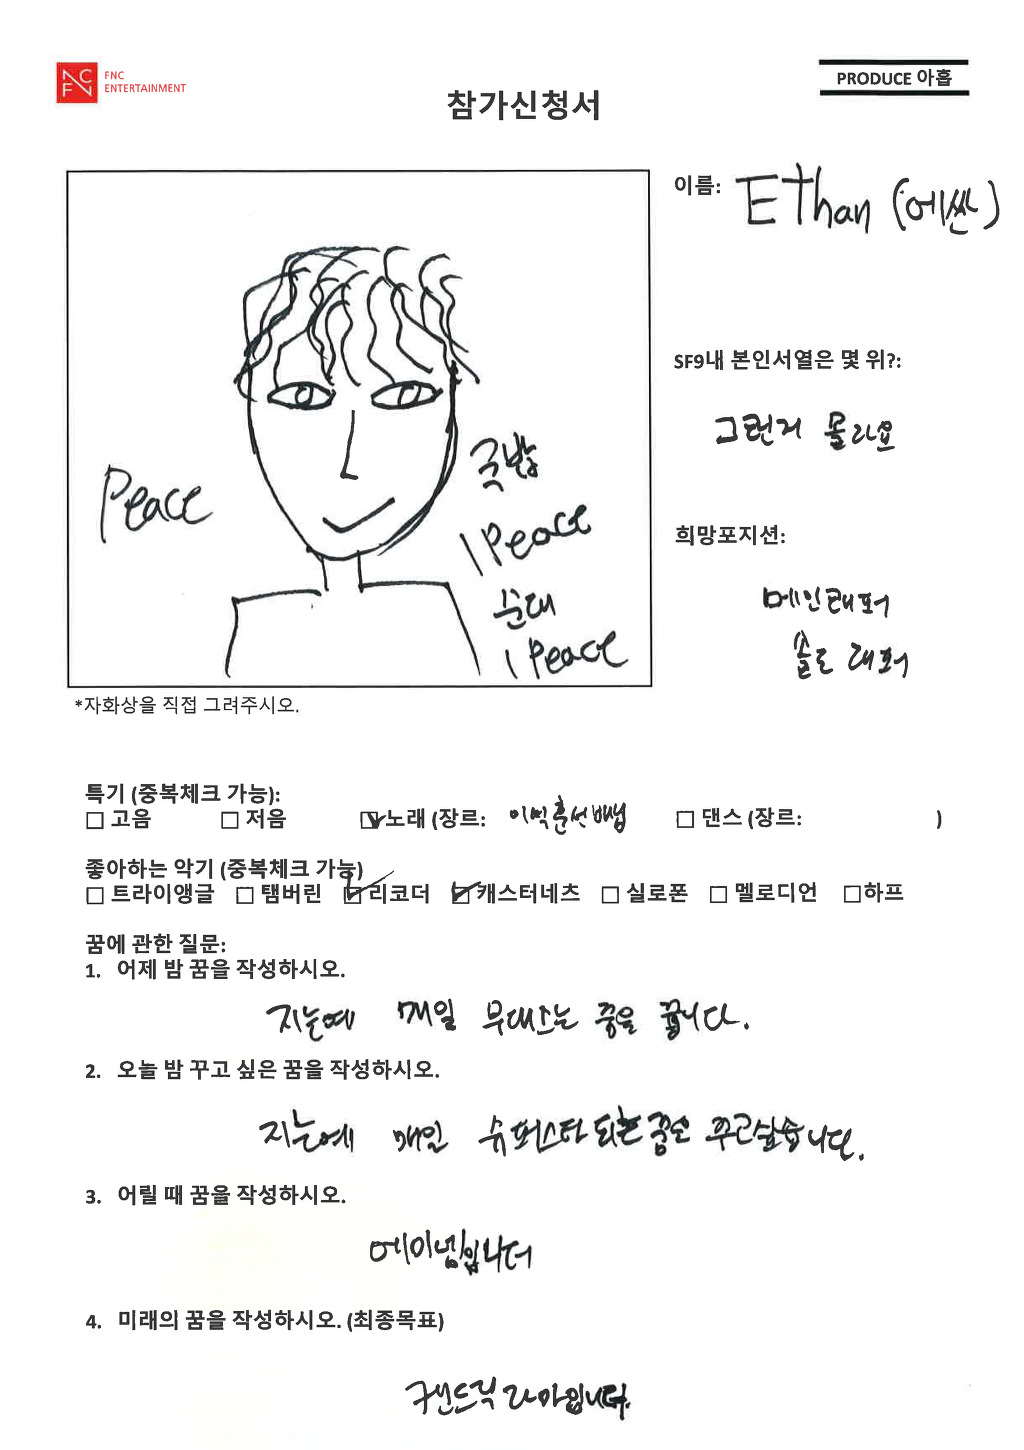 FNC
ENTERTAINMENT
PRODUCE 아홉
참가신청서
이름: Ethan (에싼)
SF9내 본인서열은 몇 위?:
그런거 몰라요
희망포지션:
메인래퍼
솔로 래퍼
Peace
국밥
1 Peace
순대
1 Peace
*자화상을 직접 그려주시오.
특기 (중복체크 가능):
□ 고음 □ 저음 ☑ 노래 (장르: □ 댄스 (장르: )
좋아하는 악기 (중복체크 가능)
□ 트라이앵글 □ 탬버린 ☑ 리코더 ☑ 캐스터네츠 □ 실로폰 □ 멜로디언 □ 하프
꿈에 관한 질문:
1. 어제 밤 꿈을 작성하시오.
지는예 매일 무대스는 꿈을 꿉니다.
2. 오늘 밤 꾸고 싶은 꿈을 작성하시오.
지는예 매일 슈퍼스타 되는 꿈을 꾸고싶습니다.
3. 어릴 때 꿈을 작성하시오.
에미넴입니더
4. 미래의 꿈을 작성하시오. (최종목표)
켄드릭 라마입니다.